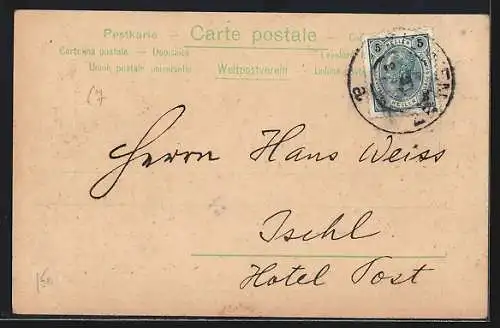 Postkarte — Carte postale
Cartolina postale —
Union postale universelle Weltpostverein
5 HELLER 5
HELLER
Herrn Hans Weiss
Ischl
Hotel Post